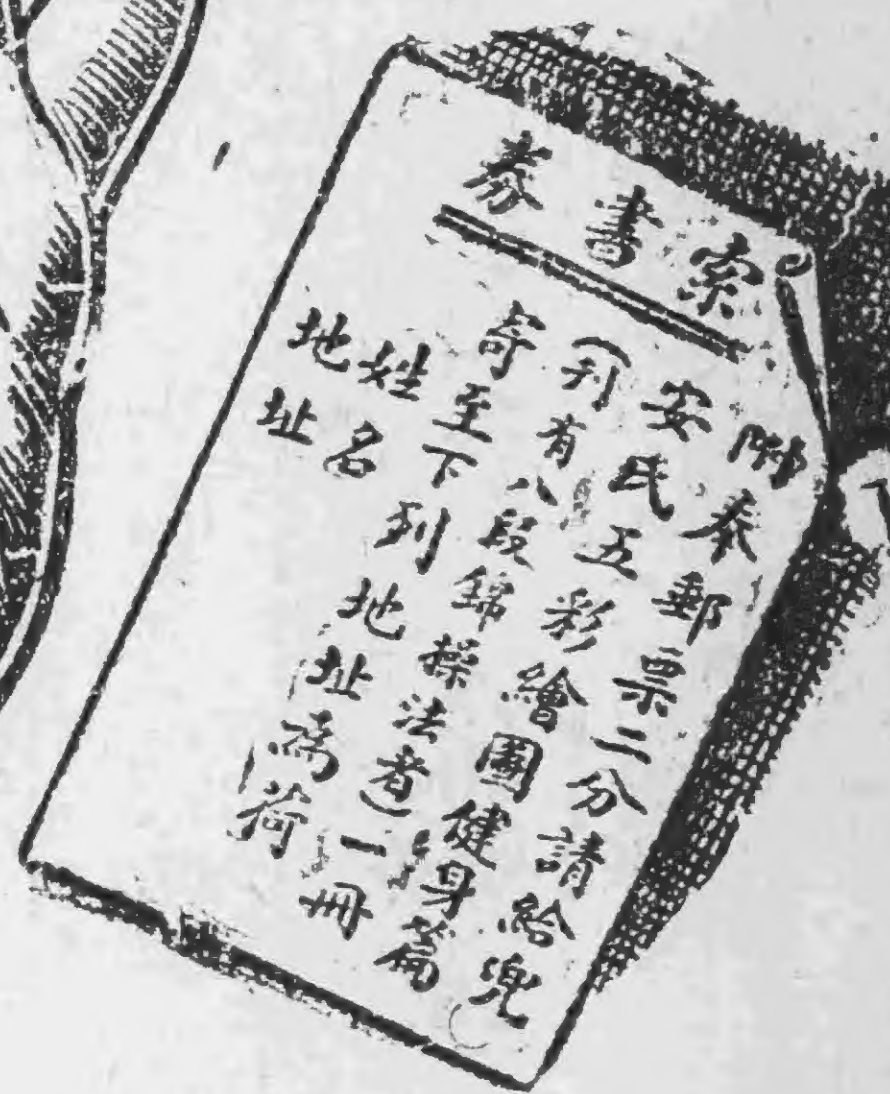 索書券
附奉郵票二分請給兜
安氏五彩繪圖健身篇
(刋有八段錦操法者)一冊
寄至下列地址爲荷
姓名
地址